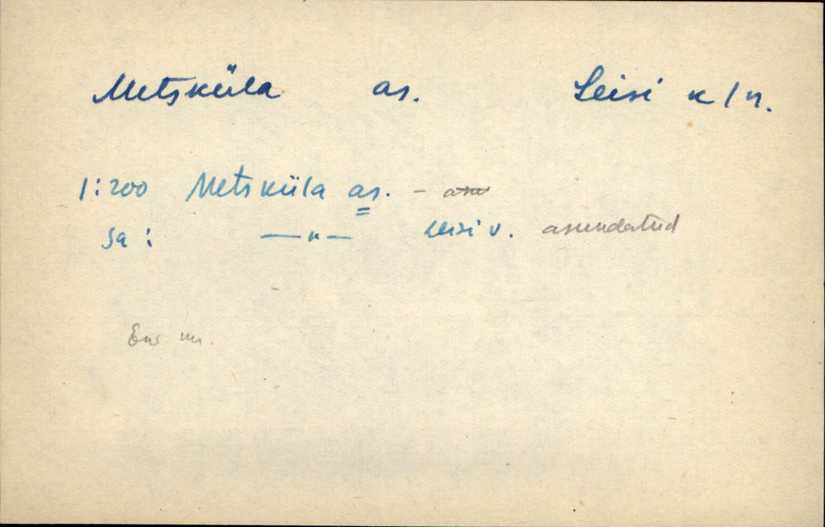 Metsküla as. Leisi k/n.
1:200 Metsküla as. -
Sa: —"— Leisi v. asundatud